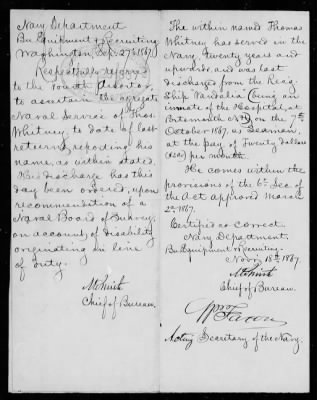 Navy Department
Bu. Equipment & Recruiting
Washington Sep. 27th 1867.
Respectfully referred
to the Fourth Auditor,
to ascertain the agregate
Naval Service of Thos.
Whitney, to date of last
returns, reporting his
name, as within stated.
His discharge has this
day been ordered, upon
recommendation of a
Naval Board of Survey,
on account of disability
originating in line
of duty.
Chief of Bureau.
The within named Thomas
Whitney has served in the
Navy, twenty years and
upwards, and was last
discharged from the Recg.
Ship Vandalia (being an
inmate of the Hospital, at
Portsmouth N.H.) on the 7th
October 1867, as Seaman,
at the pay of Twenty dollars
($20) per month.
He comes within the
provisions of the 6th Sec of
the Act approved March
2d 1867.
Certified as correct.
Navy Department,
Bu. Equipment & Recruiting.
Novr. 18th 1867.
Chief of Bureau.
Wm Faxon
Acting Secretary of the Navy.